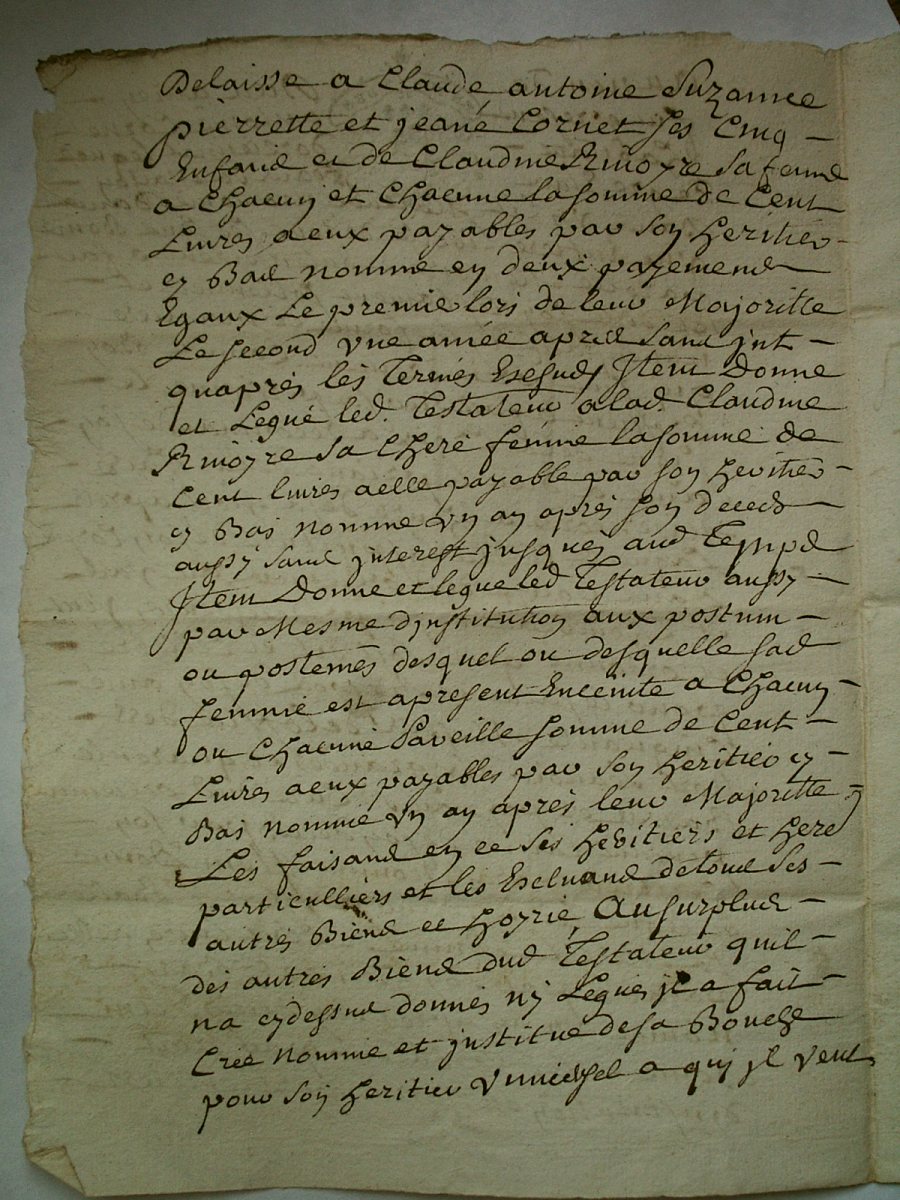 Delaisse a Claude antoine Suzanne
pierrette et jeane Cornet ses Cinq
Enfand et de Claudine Rivoyre sa feme
a Chacun et Chacune la somme de Cent
Livres a eux payables par son heritier
cy Bas nomme en deux payemend
Egaux Le premier lors de leur Majoritte
Le second vne année apred sans jnt
quaprés lés Termés Eschus Jtem Donne
et Legue led. Testateur a lad. Claudine
Rivoyre sa Chere femme la somme de
Cent livres a elle payable par son heritier
cy Bas nomme vn an aprés son deced
aussy sans jnterest jusques aud Temps
Jtem Donne et legue led Testateur aussy
par Mesme djnstitution aux postum
ou postemes desquel ou desquelle sad
femme est apresent Enceinte a Chacun
ou Chacune Pareille somme de Cent
Livres a eux payables par son heritier cy
Bas nomme vn an aprés leur Majoritte
Les faisand en ce ses heritiers et here
particulliérs et les Excluand de tous ses
autrés Biens et hoyrie Au surplus
dés autrés Biens dud Testateur quil
na cydessus donnés ny Legués jl a fait
Crée nomme et justitue de sa Bouche
pour son heritier vniversel a qui jl veut